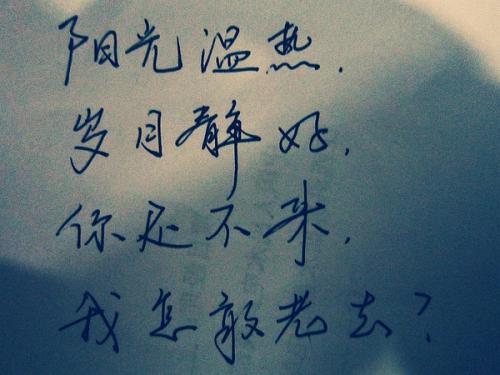 阳光温热.
岁月静好.
你还不来.
我怎敢老去?